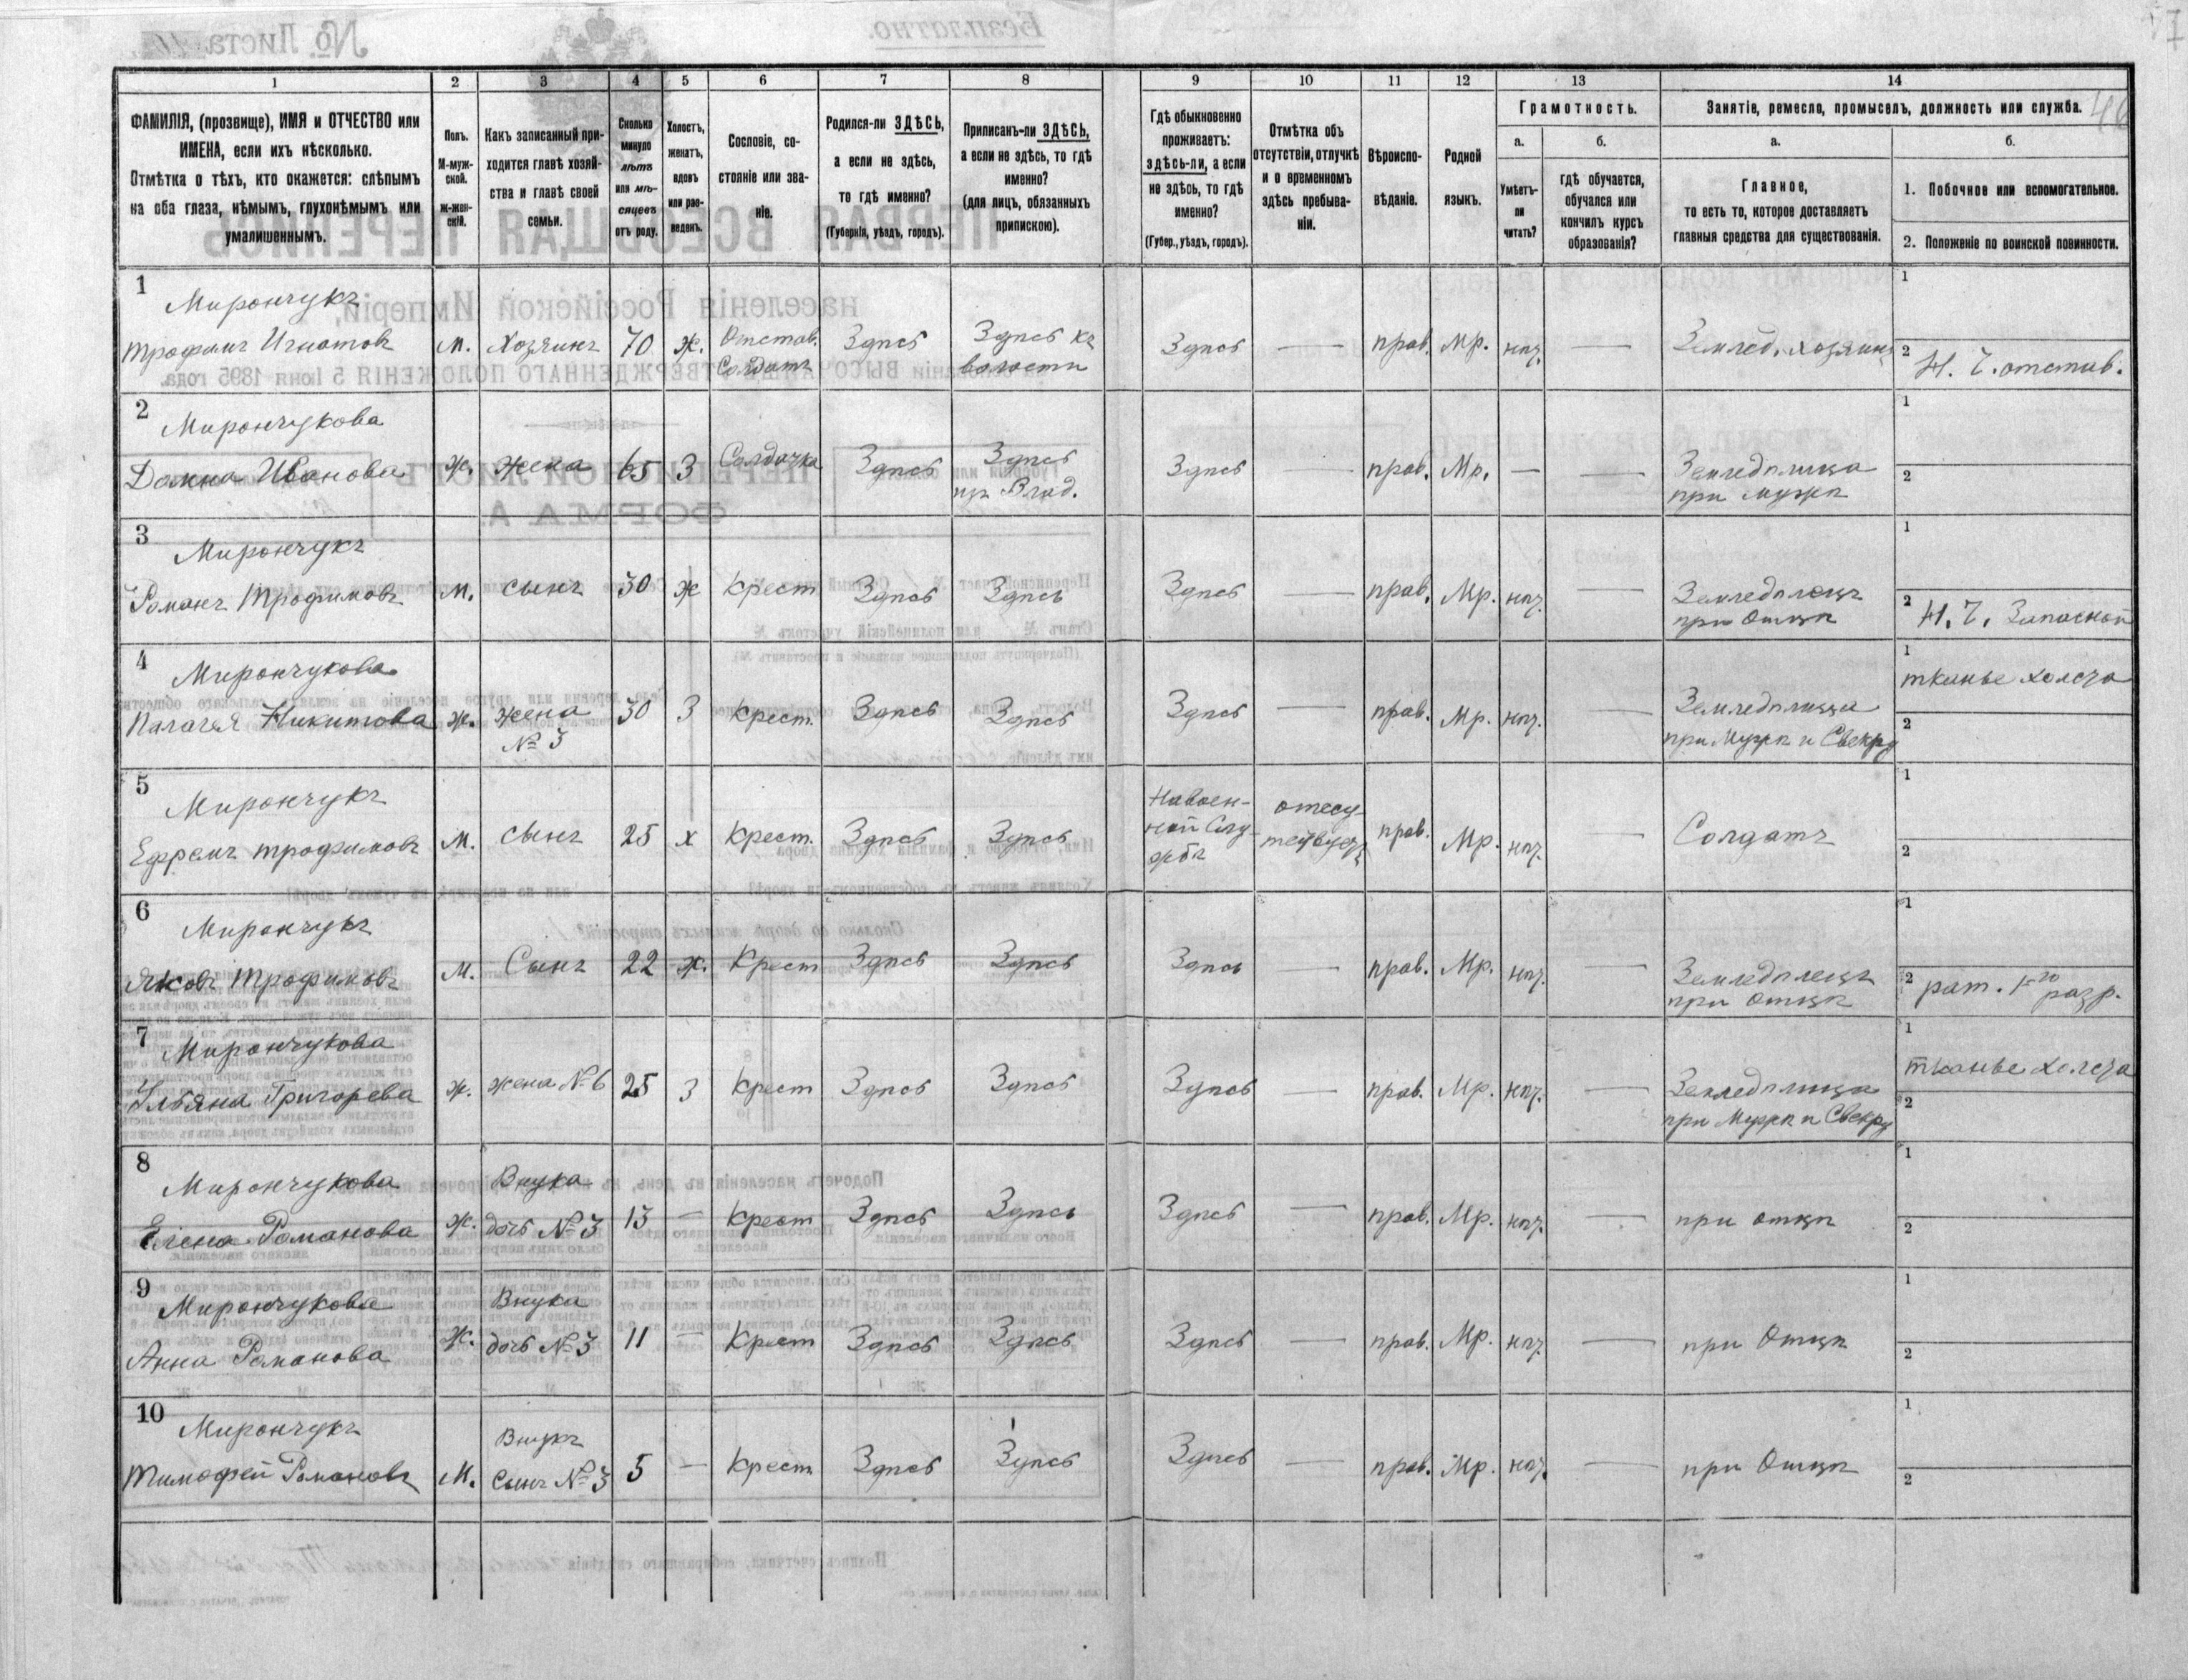 1
2
3
4
5
6
7
8
9
10
11
12
13
14
ФАМИЛІЯ, (прозвище), ИМЯ и ОТЧЕСТВО или
ИМЕНА, если ихъ нѣсколько.
Отмѣтка о тѣхъ, кто окажется: слѣпымъ
на оба глаза, нѣмымъ, глухонѣмымъ или
умалишеннымъ.
Полъ.
М-муж-
ской.
ж-жен-
скій.
Какъ записанный при-
ходится главѣ хозяй-
ства и главѣ своей
семьи.
Сколько
минуло
лѣтъ
или мѣ-
сяцевъ
отъ роду.
Холостъ,
женатъ,
вдовъ
или раз-
веденъ.
Сословіе, со-
стояніе или зва-
ніе.
Родился-ли ЗДѢСЬ,
а если не здѣсь,
то гдѣ именно?
(Губернія, уѣздъ, городъ).
Приписанъ-ли ЗДѢСЬ,
а если не здѣсь, то гдѣ
именно?
(для лицъ, обязанныхъ
припискою).
Гдѣ обыкновенно
проживаетъ:
здѣсь-ли, а если
не здѣсь, то гдѣ
именно?
(Губер., уѣздъ, городъ).
Отмѣтка объ
отсутствіи, отлучкѣ
и о временномъ
здѣсь пребыва-
ніи.
Вѣроиспо-
вѣданіе.
Родной
языкъ.
Грамотность.
а.
Умѣетъ-
ли
читать?
б.
гдѣ обучается,
обучался или
кончилъ курсъ
образованія?
Занятіе, ремесло, промыселъ, должность или служба.
а.
Главное,
то есть то, которое доставляетъ
главныя средства для существованія.
б.
1. Побочное или вспомогательное.
2. Положеніе по воинской повинности.
1
Мирончукъ
Трофимъ Игнатовъ
м. Хозяинъ 70 ж. Отстав. Солдатъ Здѣсь Здѣсь къ волости Здѣсь — прав. Мр. нѣт. — Землед. хозяинъ
1
2 Н. Ч. отстав.
2
Мирончукова
Домна Иванова
ж. жена 65 З Солдатка Здѣсь Здѣсь Здѣсь — прав. Мр. — — Земледѣлица при мужѣ
1
2
3
Мирончукъ
Романъ Трофимовъ
м. сынъ 30 ж Крест Здѣсь Здѣсь Здѣсь — прав. Мр. нѣт. — Земледѣлецъ при Отцѣ
1
2 Н. Ч. Запасной
4
Мирончукова
Палагея Никитова
ж. жена № 3 30 З Крест. Здѣсь Здѣсь Здѣсь — прав. Мр. нѣт. — Земледѣлица при Мужѣ и Свекру
1 тканье холста
2
5
Мирончукъ
Ефремъ трофимовъ
м. сынъ 25 х Крест. Здѣсь Здѣсь На воен-ной Службѣ отсутствуетъ прав. Мр. нѣт. — Солдатъ
1
2
6
Мирончукъ
Яковъ Трофимовъ
м. Сынъ 22 ж. Крест Здѣсь Здѣсь Здѣсь — прав. Мр. нѣт. — Земледѣлецъ при Отцѣ
1
2 рат. 1го разр.
7
Мирончукова
Ульяна Григорева
ж. жена № 6 25 З Крест Здѣсь Здѣсь Здѣсь — прав. Мр. нѣт. — Земледѣлица при Мужѣ и Свекру
1 тканье холста
2
8
Мирончукова
Елена Романова
ж. Внука дочь № 3 13 — Крест Здѣсь Здѣсь Здѣсь — прав. Мр. нѣт. — при отцѣ
1
2
9
Мирончукова
Анна Романова
ж. Внука дочь № 3 11 — Крест Здѣсь Здѣсь Здѣсь — прав. Мр. нѣт. — при Отцѣ
1
2
10
Мирончукъ
Тимофей Романовъ
м. Внукъ Сынъ № 3 5 — Крест Здѣсь Здѣсь Здѣсь — прав. Мр. нѣт. — при Отцѣ
1
2